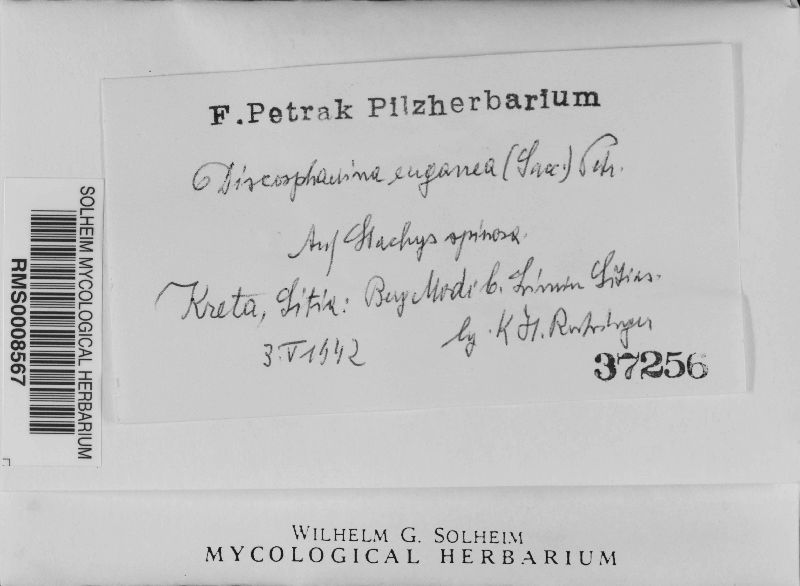 F. Petrak Pilzherbarium
Discosphaerina euganea (Sacc.) Petr.
Auf Stachys spinosa.
Kreta, Sitia: Berg Modi b. Sitias.
3. V 1942
lg. K. H. Rechinger
37256
SOLHEIM MYCOLOGICAL HERBARIUM
RMS0008567
WILHELM G. SOLHEIM
MYCOLOGICAL HERBARIUM